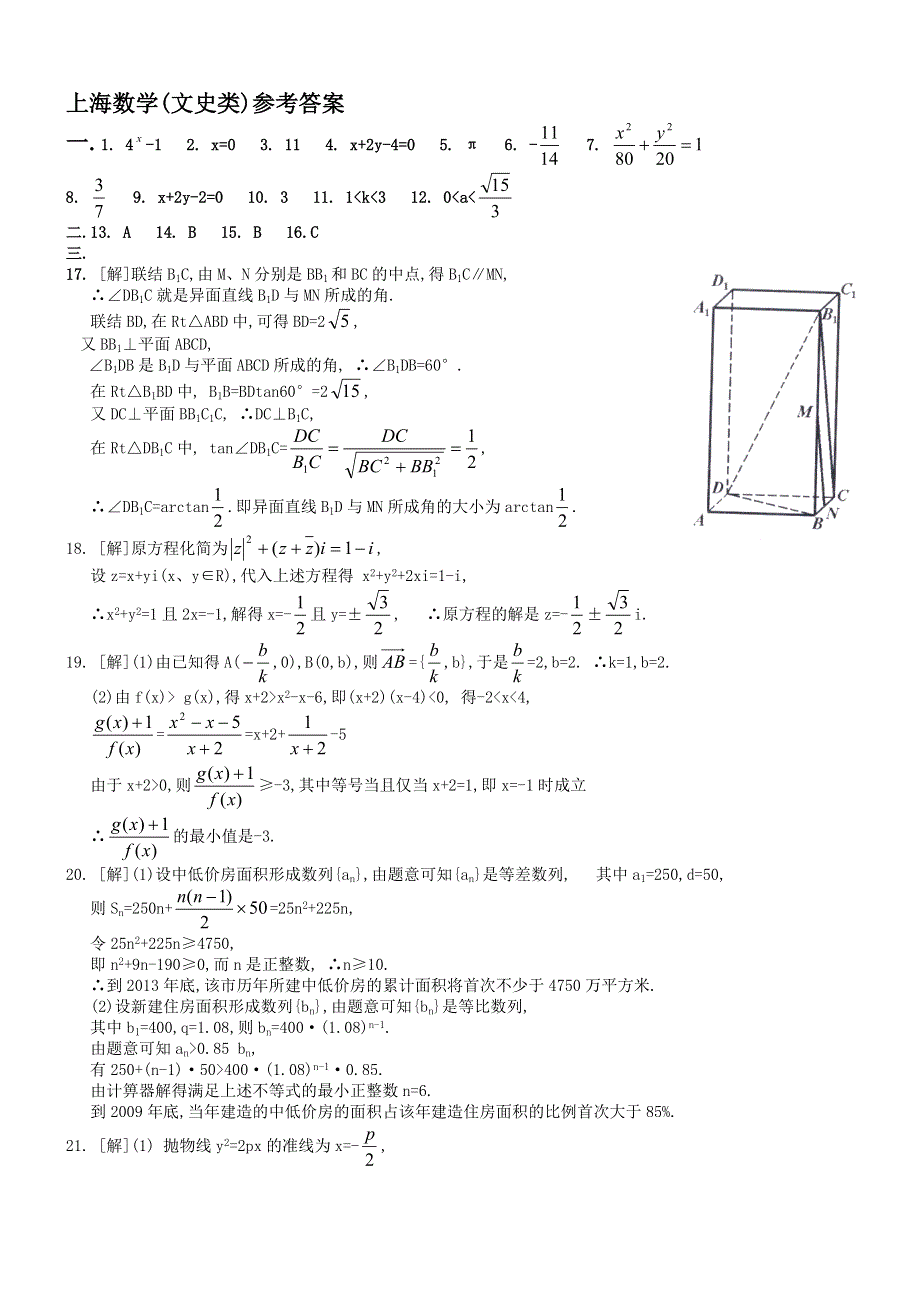 上海数学(文史类)参考答案
一. 1. 4^x-1 2. x=0 3. 11 4. x+2y-4=0 5. π 6. -11/14 7. x²/80+y²/20=1
8. 3/7 9. x+2y-2=0 10. 3 11. 1<k<3 12. 0<a<√15/3
二.13. A 14. B 15. B 16.C
三.
17. [解]联结B₁C,由M、N分别是BB₁和BC的中点,得B₁C∥MN,
∴∠DB₁C就是异面直线B₁D与MN所成的角.
联结BD,在Rt△ABD中,可得BD=2√5,
又BB₁⊥平面ABCD,
∠B₁DB是B₁D与平面ABCD所成的角, ∴∠B₁DB=60°.
在Rt△B₁BD中, B₁B=BDtan60°=2√15,
又DC⊥平面BB₁C₁C, ∴DC⊥B₁C,
在Rt△DB₁C中, tan∠DB₁C=DC/B₁C=DC/√(BC²+BB₁²)=1/2,
∴∠DB₁C=arctan1/2.即异面直线B₁D与MN所成角的大小为arctan1/2.
D₁
C₁
A₁
B₁
M
D
C
A
B
N
18. [解]原方程化简为|z|²+(z+z̅)i=1-i,
设z=x+yi(x、y∈R),代入上述方程得 x²+y²+2xi=1-i,
∴x²+y²=1且2x=-1,解得x=-1/2且y=±√3/2, ∴原方程的解是z=-1/2±√3/2i.
19. [解](1)由已知得A(-b/k,0),B(0,b),则AB→={b/k,b},于是b/k=2,b=2. ∴k=1,b=2.
(2)由f(x)> g(x),得x+2>x²-x-6,即(x+2)(x-4)<0, 得-2<x<4,
(g(x)+1)/f(x)=(x²-x-5)/(x+2)=x+2+1/(x+2)-5
由于x+2>0,则(g(x)+1)/f(x)≥-3,其中等号当且仅当x+2=1,即x=-1时成立
∴(g(x)+1)/f(x)的最小值是-3.
20. [解](1)设中低价房面积形成数列{aₙ},由题意可知{aₙ}是等差数列, 其中a₁=250,d=50,
则Sₙ=250n+n(n-1)/2×50=25n²+225n,
令25n²+225n≥4750,
即n²+9n-190≥0,而n是正整数, ∴n≥10.
∴到2013年底,该市历年所建中低价房的累计面积将首次不少于4750万平方米.
(2)设新建住房面积形成数列{bₙ},由题意可知{bₙ}是等比数列,
其中b₁=400,q=1.08,则bₙ=400·(1.08)ⁿ⁻¹.
由题意可知aₙ>0.85 bₙ,
有250+(n-1)·50>400·(1.08)ⁿ⁻¹·0.85.
由计算器解得满足上述不等式的最小正整数n=6.
到2009年底,当年建造的中低价房的面积占该年建造住房面积的比例首次大于85%.
21. [解](1) 抛物线y²=2px的准线为x=-p/2,